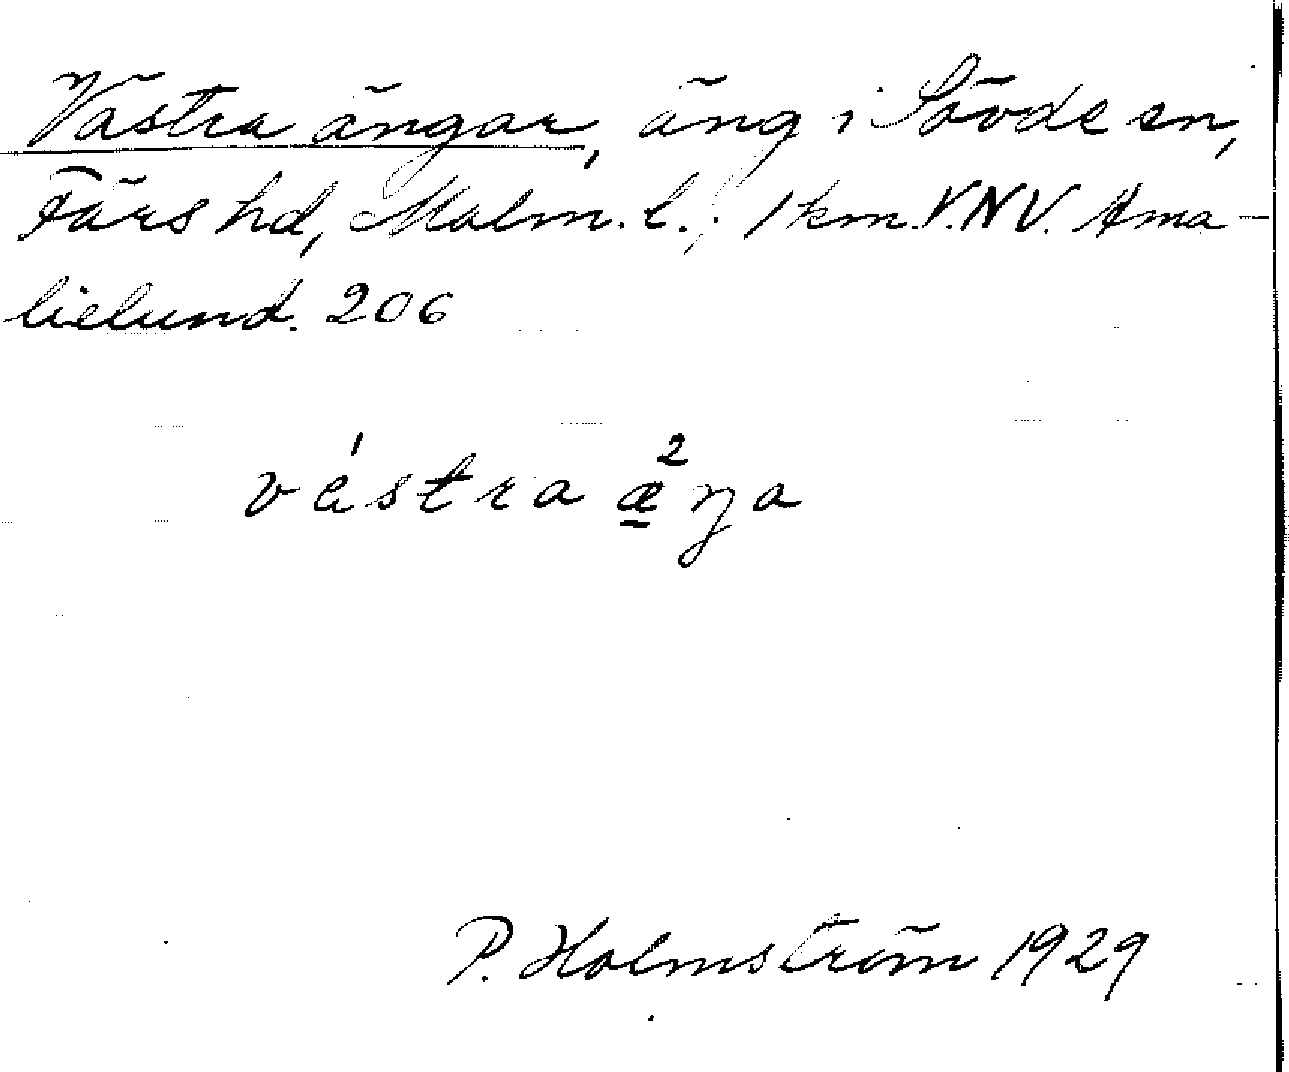 Västra ängar, äng i Sövde sn,
Färs hd, Malm. l.; 1 km. V.NV. Ama-
lielund. 206
vá̈stra æ̱²ŋa
P. Holmström 1929